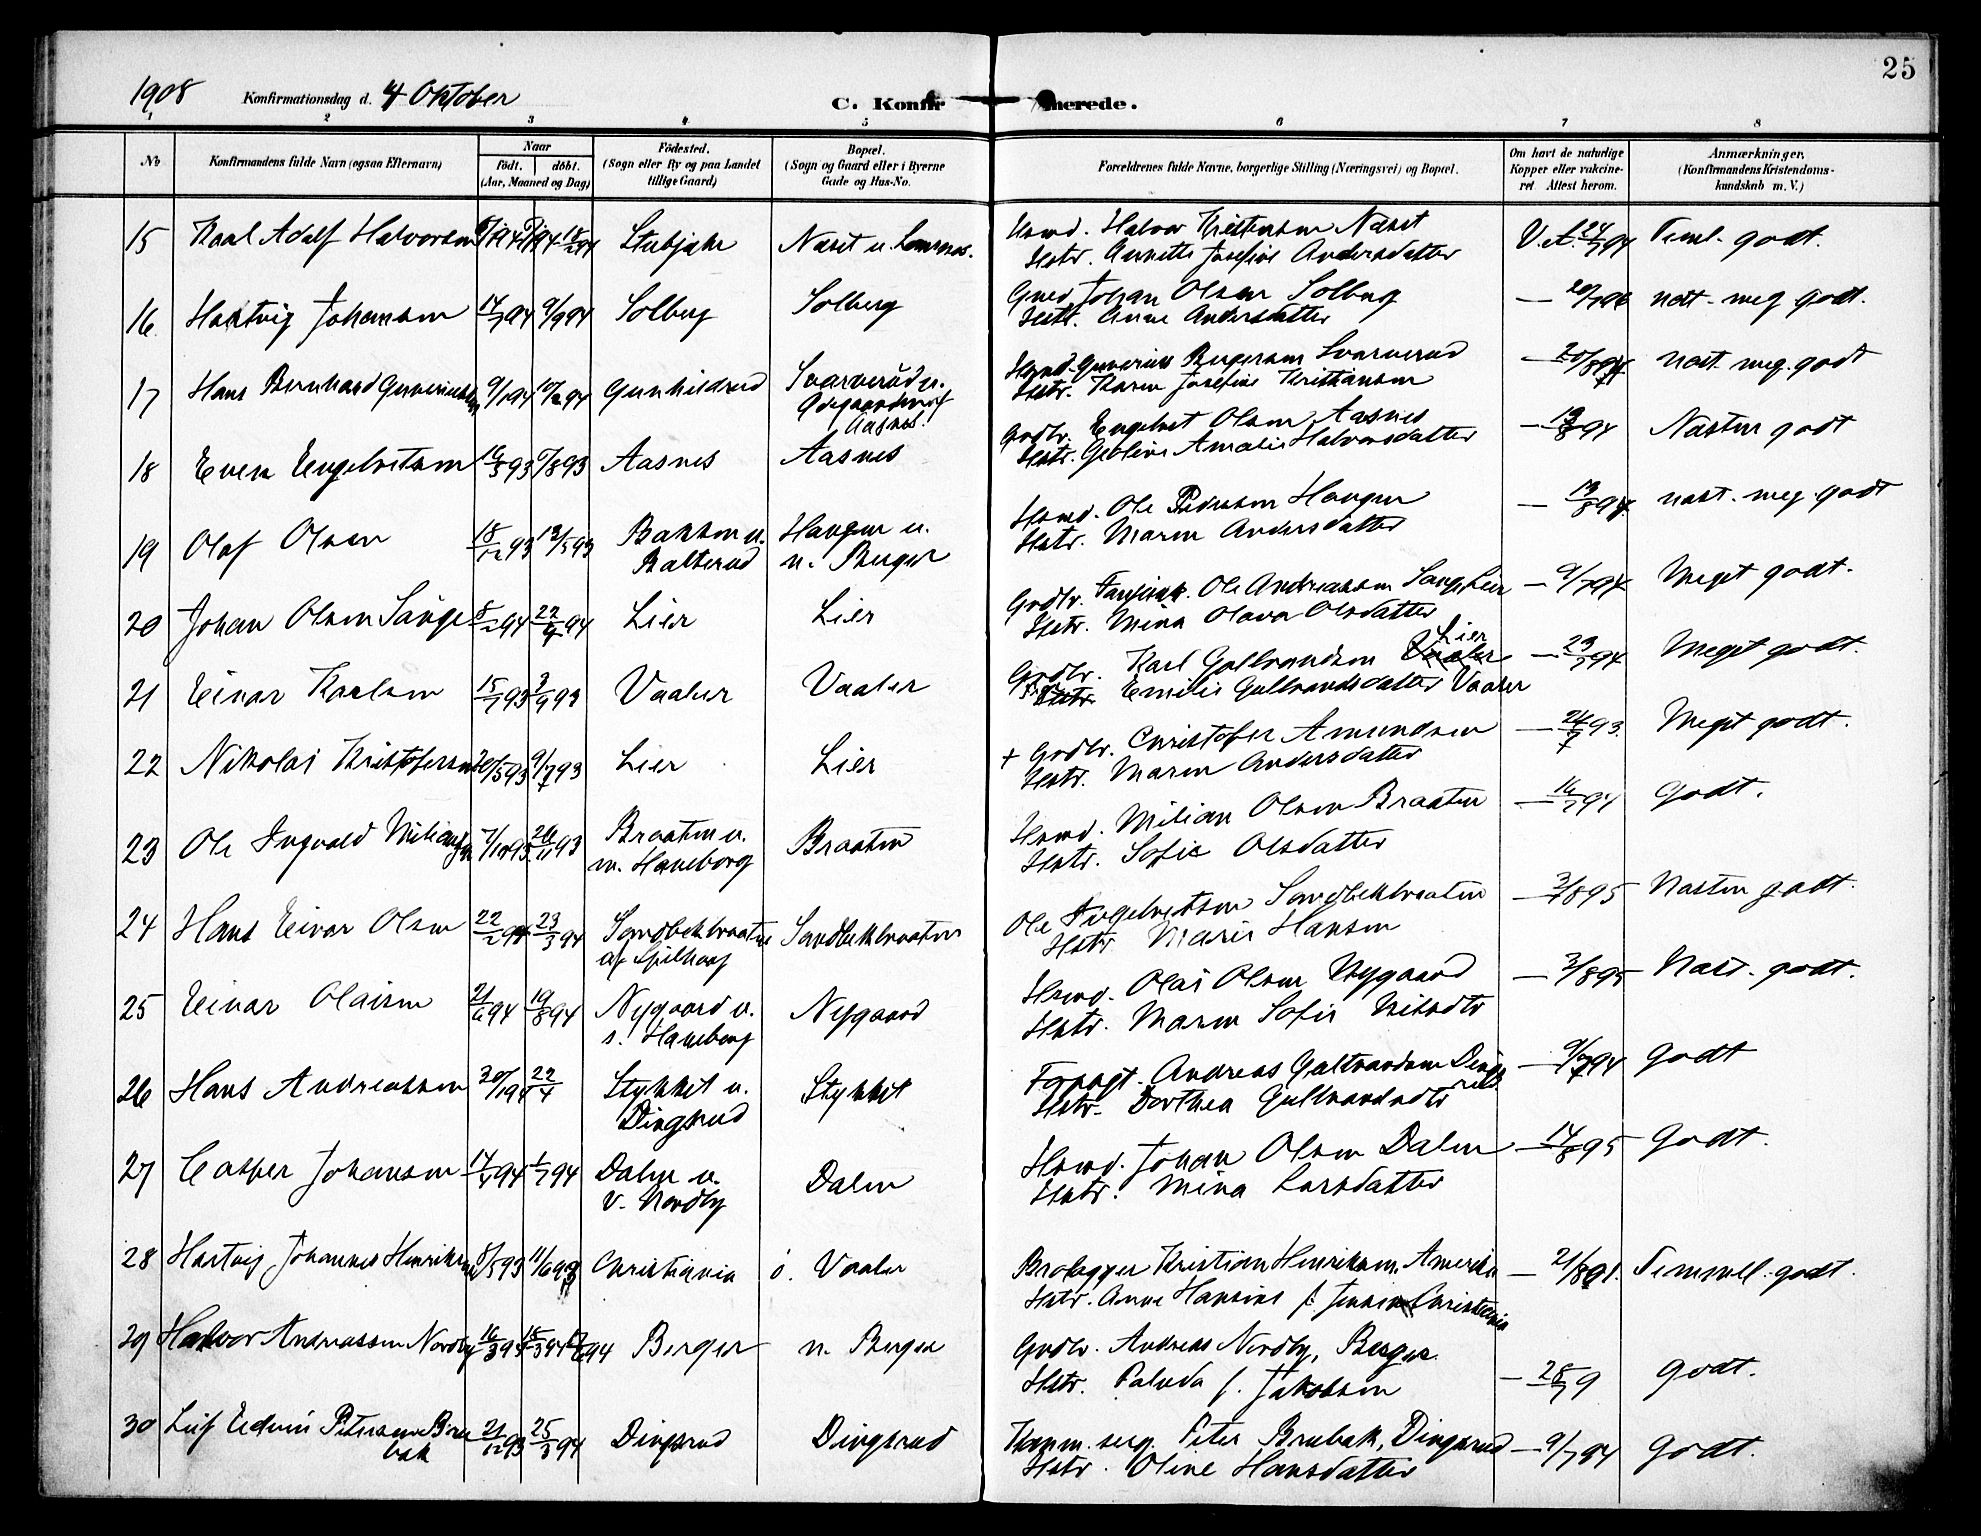 25
1908 Konfirmationsdag d. 4 Oktober
C. Konfirmerede.
1 2 3 4 5 6 7 8
No Konfirmandens fulde Navn (ogsaa Efternavn) Naar født. døbt. (Aar, Maaned og Dag) Fødested. (Sogn eller By og paa Landet tillige Gaard) Bopæl. (Sogn og Gaard eller i Byerne Gade og Hus-No. Forældrenes fulde Navne, borgerlige Stilling (Næringsvei) og Bopæl. Om havt de naturlige Kopper eller vakcineret. Attest herom. Anmærkninger, (Konfirmandens Kristendomskundskab m. V.)
15 Karl Adolf Halvorsen Stubjahr Næset u. Husmd. Halvor Kristensen Næset V. A. 24/7 94 Teml. godt.
Hstr. Annette Josefine Andersdatter
16. Hartvig Johansen 17/7 94 9/9 94 Solberg Solberg Gmd. Johan Olsen Solberg — 20/7 96 næst. meg. godt.
Hstr. Anne Andersdatter
17 Hans Bernhard Gunerius 9/1 94 Gunhildrud Svarverud u. Aasnes. Husmd. Gunerius Bergersen Svarverud — 20/8 94 næst. meg. godt
Hstr. Karen Josefine Kristiansen
18 Even Engebretsen 16/3 93 /8 93 Aasnes Aasnes Grdbr. Engebret Olsen Aasnes — 13/8 94 Næsten godt
Hstr. Amalie Halvorsdatter
19 Olaf Olsen 18/12 93 Bakken u. Balterud Haugen u. n. Berger Husmd. Ole Pedersen Haugen — 13/8 94 næst. meg. godt
Hstr. Maren Andersdatter
20 Johan Olsen Sange 8/2 94 22/4 94 Lier Lier Grdbr. Ole Andreassen Sange Lier — 9/7 94 Meget godt.
Hstr. Mina Olava Olsdatter
21 Einar Karlsen 15/7 93 3/9 93 Vaaler Vaaler Grdbr. Karl Gulbrandsen Lier — 23/7 94 Meget godt.
Emilie Gulbrandsdatter Vaaler
22 Nikolai Kristofersen 20/5 93 9/7 93 Lier Lier + Grdbr. Christofer Amundsen — 24/7 93. Meget godt.
Hstr. Maren Andersdatter
23 Ole Ingvald Miliansen 7/10 93 26/11 93 Braaten u. m. Haneborg Braaten Husmd. Milian Olsen Braaten — 16/7 94 Godt.
Hstr. Sofie Olsdatter
24 Hans Einar Olsen 22/2 94 23/3 94 Sandbekbraaten Sandbekbraaten Ole Ingebretsen Sandbekbraaten — 3/8 95 Næsten godt.
Hstr. Marie Hansen
25 Einar Olaisen 21/6 94 19/8 94 Nygaard u. s. Haneborg Nygaard Husmd. Olai Olsen Nygaard — 3/8 95 Næst. godt.
Hstr. Maren Sofie Nilsdtr
26 Hans Andreassen 30/1 94 22/4 Stykket u. Dingsrud Stykket Forpagt. Andreas Gulbrandsen Dingsrud — 9/7 94 Godt
Hstr. Dorthea Gulbrandsdtr
27 Casper Johansen 17/4 94 1/7 94 Dalen u. v. Nordby Dalen Husmd. Johan Olsen Dalen — 14/8 95 Godt.
Hstr. Mina Larsdatter
28 Hartvig Johannes Henriksen 8/5 93 11/6 93 Christiania ö. Vaaler Brolægger Kristian Henriksen, Amerika — 21/8 91. Temmel. godt.
Hstr. Anne Hansine f. Jensen Christiania
29 Halvor Andreassen Nordby 16/3 94 Berger n. Berger Grdbr. Andreas Nordby, Berger — 28/7 9 Godt.
Hstr. Paluda f. Jakobsen
30 Leif Edvin Petersen Brubak 21/12 93 25/3 94 Dingsrud Dingsrud Korm. serg. Peter Brubak, Dingsrud — 9/7 94 Godt.
Hstr. Oline Hansdatter